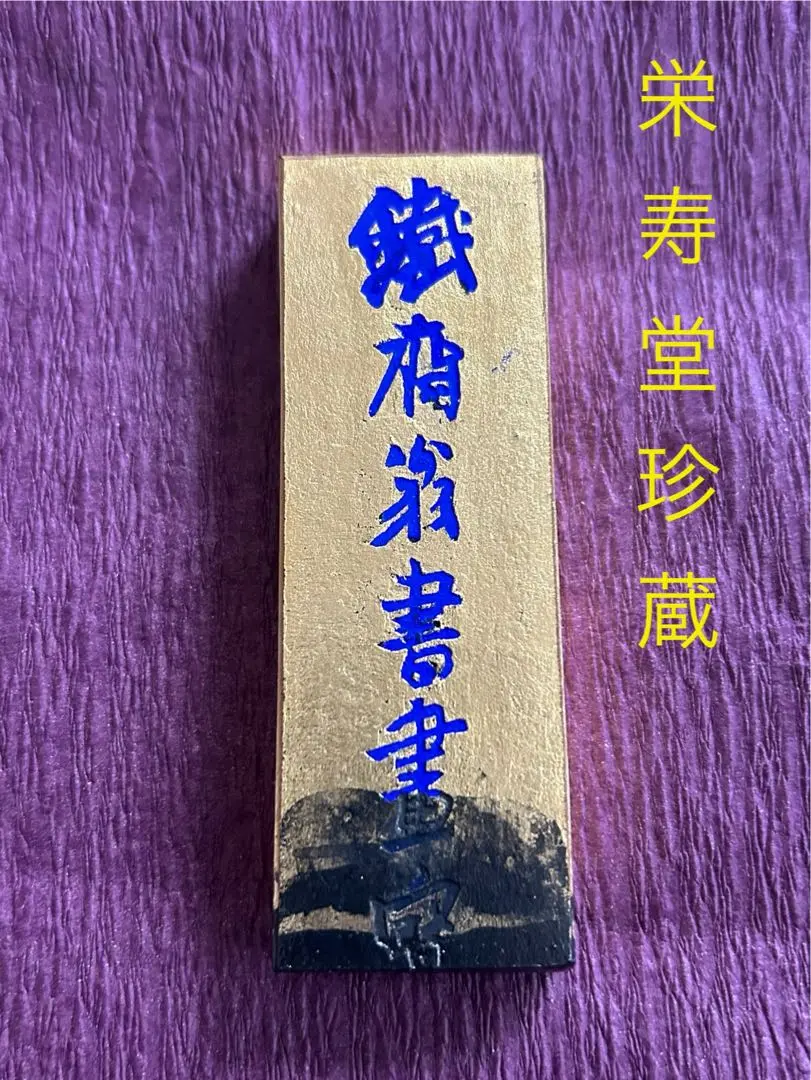 栄寿堂珍蔵
鐵齋翁書畫